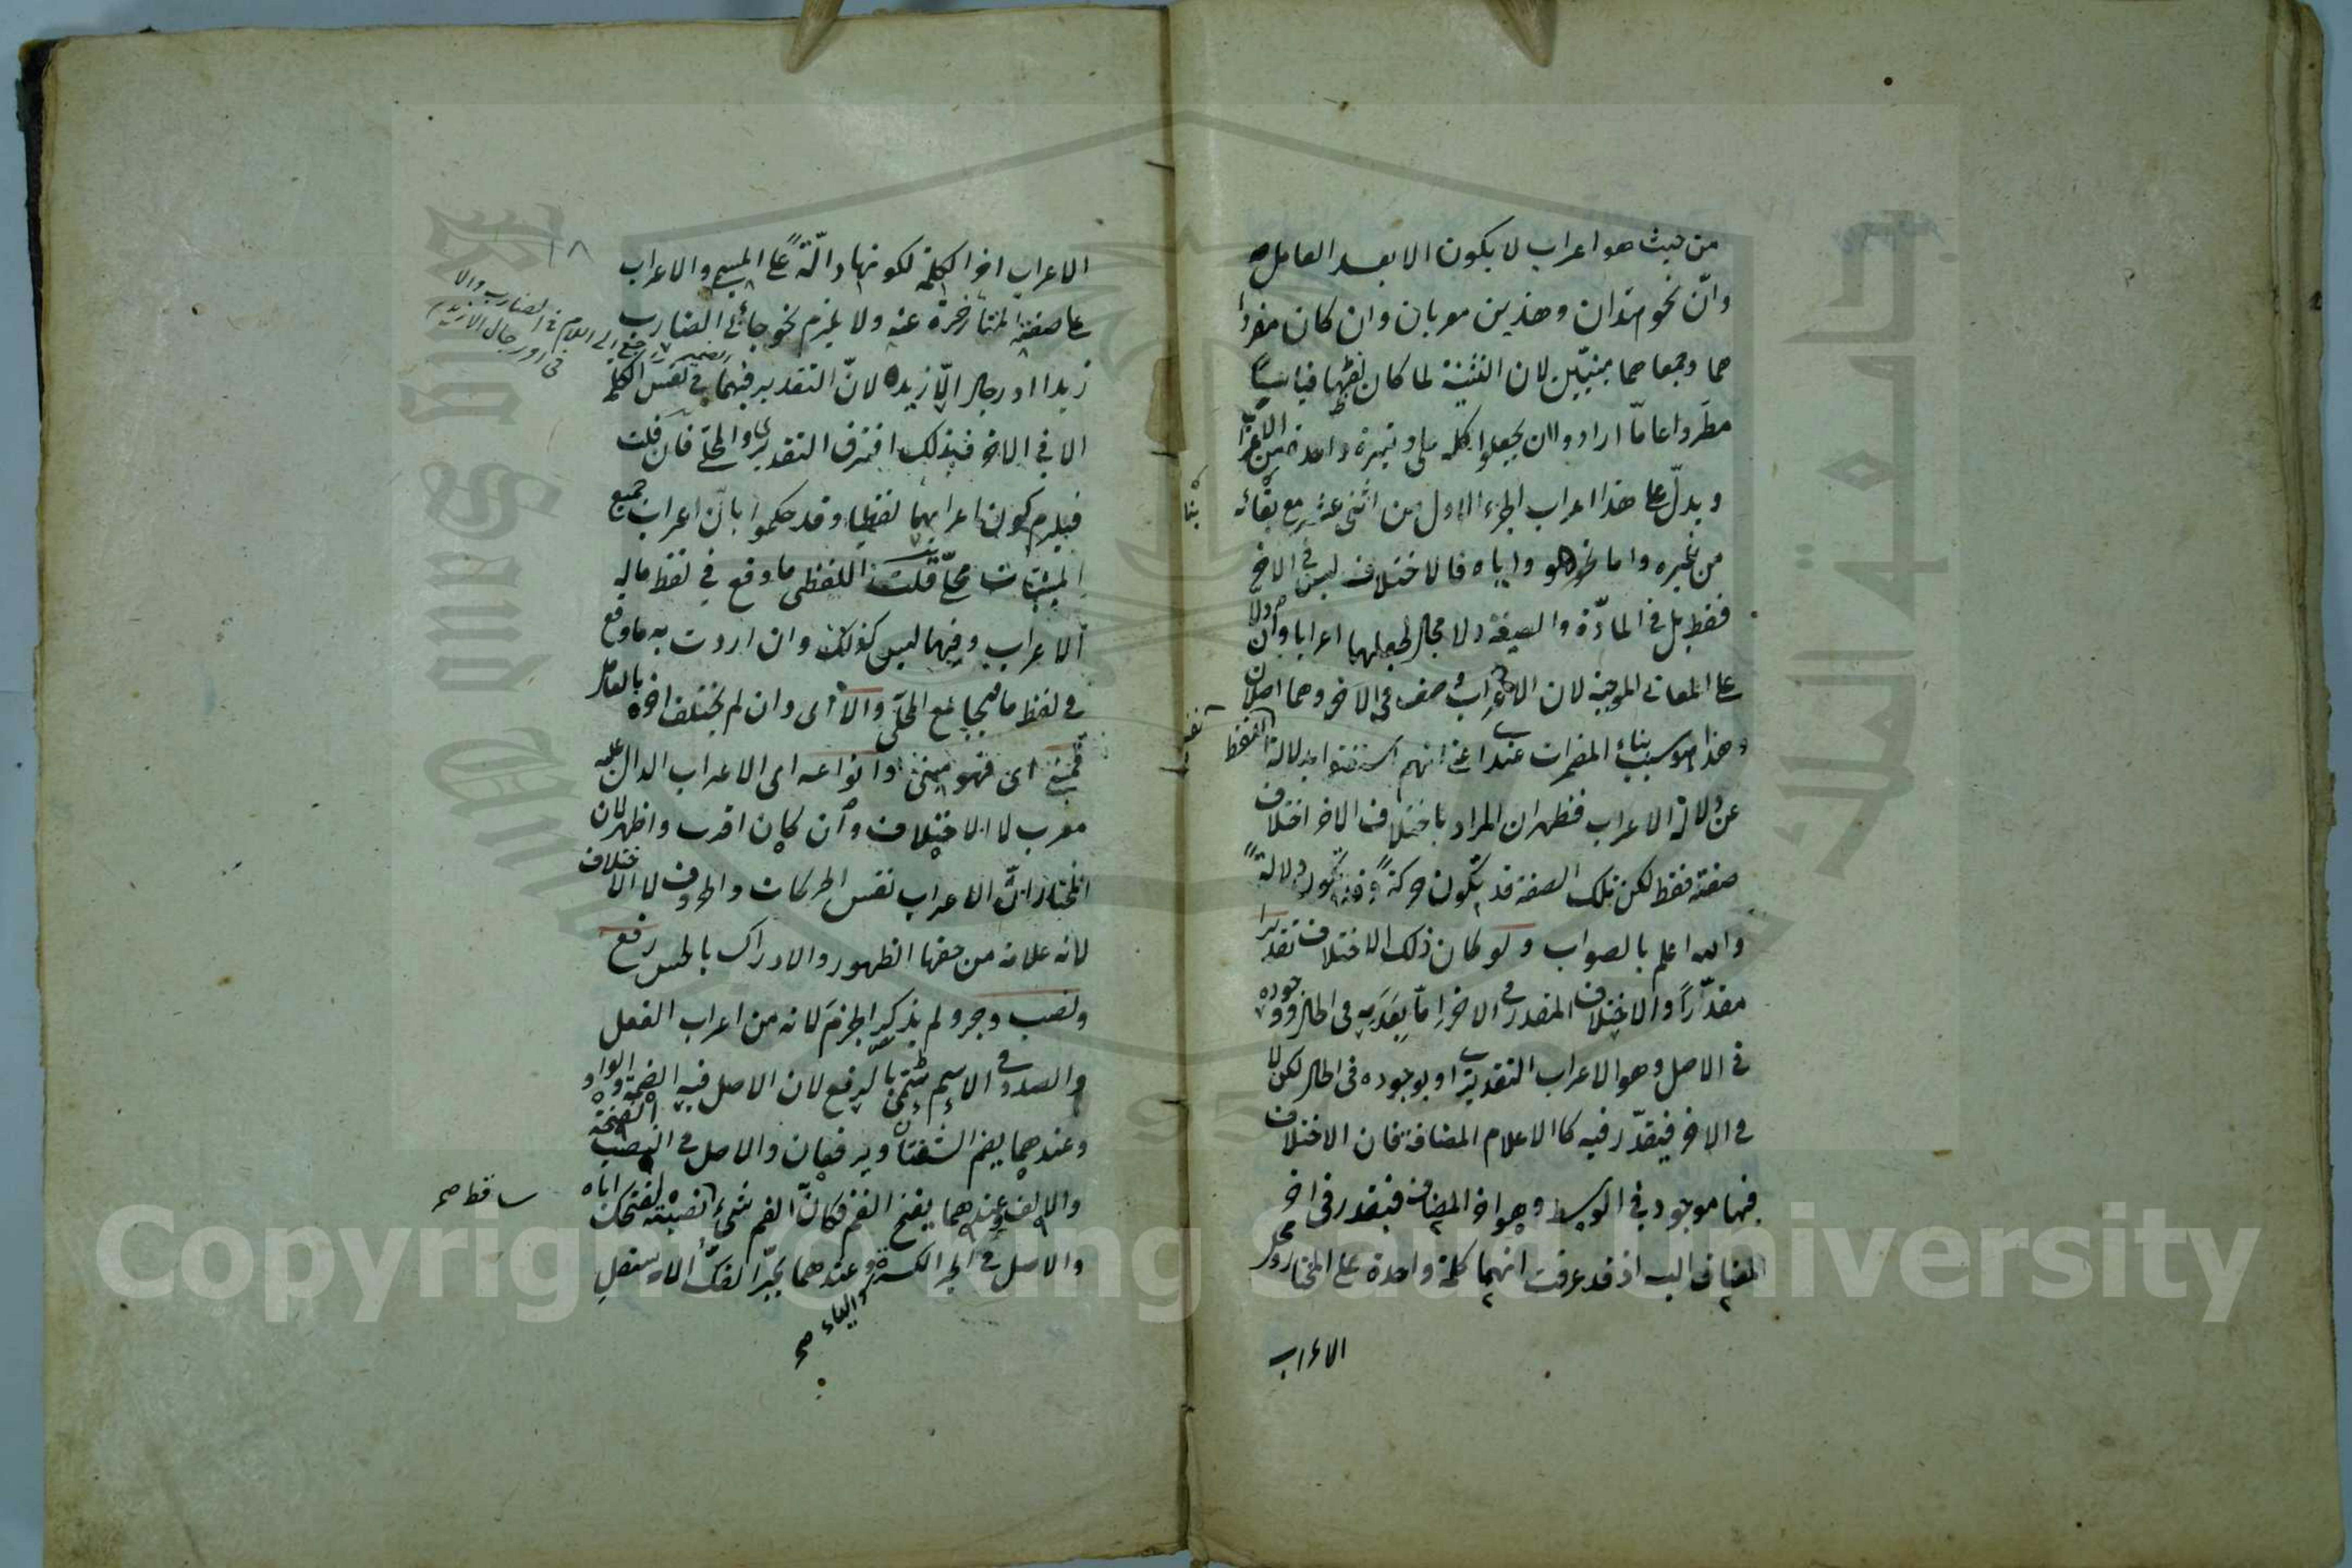 من حيث هو اعراب لا يكون الا بعد العامل
وانّ نحو هذان وهذين معربان وان كان مفردا
هما وجمعاهما مبنيّين لان التثنية لما كان لفظها قياسيّا
مطّردا عامّا ارادوا ان يجعلوا كله على وتيرة واحدة من الاعراب
ويدلّ على هذا اعراب الجزء الاول من اثنى عشر مع بقائه
من غيره واما نحو هو واياه فالاختلاف ليس فى الاخر
فقط بل فى المادّة والصيغة ولا مجال لجعلهما اعرابا وان دلا
على المعانى الموجبة لان الاعراب صفة فى الاخر وهما اصلان
وهذا هو سبب بناء المضمرات عندى اعنى انهم استغنوا بدلالة اللفظ
عن دلالة الاعراب فظهر ان المراد باختلاف الاخر اختلاف
صفته فقط لكن تلك الصفة قد تكون حركة
والله اعلم بالصواب ولو كان ذلك الاختلاف تقديرا
مقدّرا والاختلاف المقدر فى الاخر اما بعدمه فى الحال ووجوده
فى الاصل وهو الاعراب التقديرى او بوجوده فى الحال لكن لا
فى الاخر فيقدّر فيه كالاعلام المضافة فان الاختلاف
فيها موجود فى الوسط وهو اخر المضاف فيقدر فى اخر
المضاف اليه اذ قد عرفت انهما كلمة واحدة على المختار ومحل
الاعراب
١٨
الاعراب اخر الكلمة لكونها دالّة على المسمى والاعراب
على صفته المتأخرة عنه ولا يلزم نحو جائنى الضارب
زيدا او رجال الّا زيد لانّ التقدير فيهما فى نفس الكلمة
الا فى الاخر فبذلك افترق التقديرى والمحلى فان قلت
فيلزم كون اعرابهما لفظيا وقد حكموا بانّ اعراب جميع
المبنيات محلّى قلت اللفظى ما وقع فى لفظ ماله
الاعراب وفيهما ليس كذلك وان اردت به ما وقع
فى لفظ ما فيجامع المحلّى والا اى وان لم يختلف اخره بالعامل
فمبنى اى فهو مبنى وانواعه اى الاعراب الدال عليه
معرب لا الاختلاف وان كان اقرب واظهر لان
المختار انّ الاعراب نفس الحركات والحروف لا الاختلاف
لانه علامة من حقها الظهور والادراك بالحس رفع
ونصب وجر ولم يذكر الجزم لانه من اعراب الفعل
والصدد فى الاسم سمى بالرفع لان الاصل فيه الضمة والواو
وعندهما يضم الشفتان ويرفعان والاصل فى النصب الفتحة
والالف وعندهما يفتح الفم فكانّ الفم شىء نصبته لفتحك اياه
والاصل فى الجر الكسرة وعندهما يجرّ الفكّ الاسفل
والياء صح
ساقط صح
الضمير راجع الى اللام فى الضارب والا
فى او رجال الا زيد